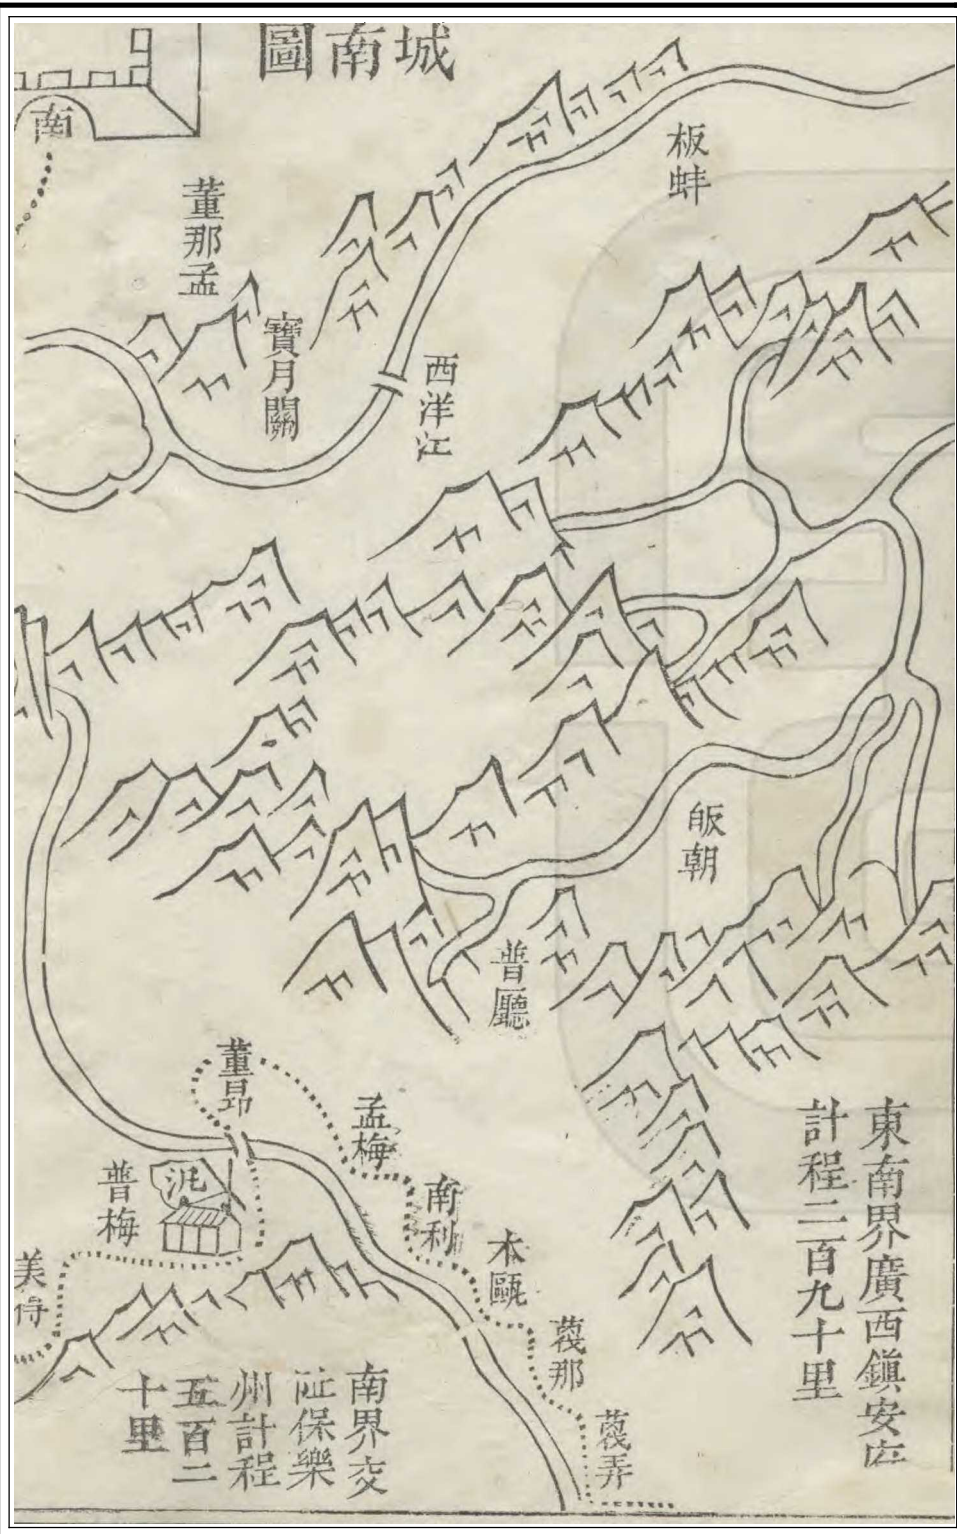 城南圖
南
板蚌
董那孟
寶月關
西洋江
皈朝
普廳
董昂
孟梅
南利
木甌
普梅
汛
美得
莪那
莪弄
東南界廣西鎮安府
計程二百九十里
南界交
阯保樂
州計程
五百二
十里